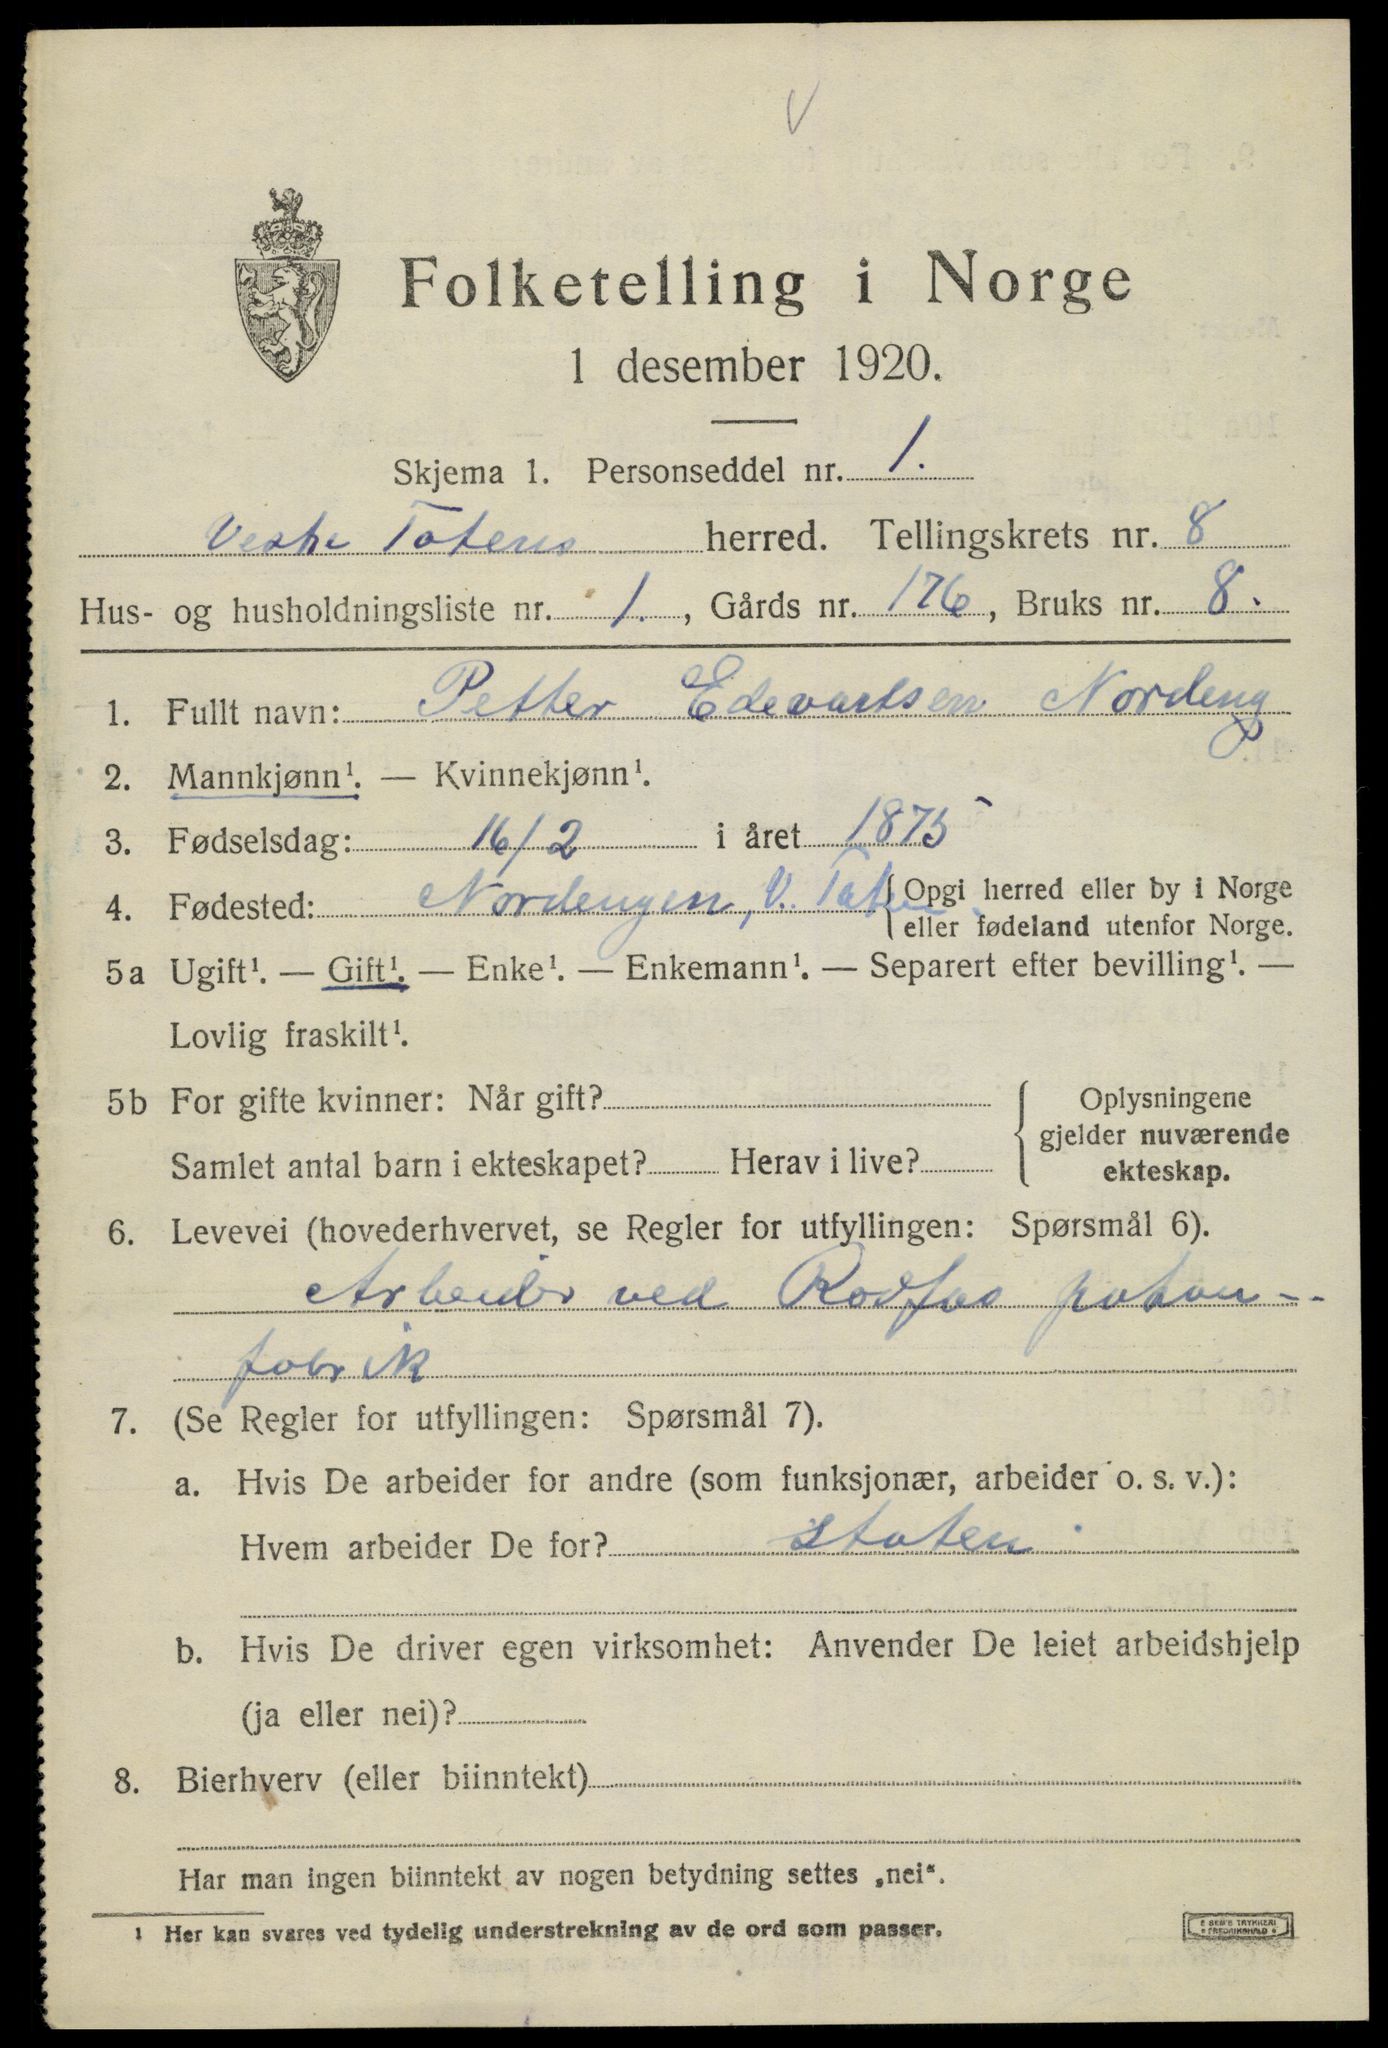 Folketelling i Norge
1 desember 1920.
Skjema 1. Personseddel nr. 1.
Vestre Totens herred. Tellingskrets nr. 8
Hus- og husholdningsliste nr. 1., Gårds nr. 176, Bruks nr. 8.
1. Fullt navn: Petter Edevartsen Nordeng
2. Mannkjønn¹. — Kvinnekjønn¹.
3. Fødselsdag: 16/2 i året 1875
4. Fødested: Nordengen, V. Toten. Opgi herred eller by i Norge
eller fødeland utenfor Norge.
5a Ugift¹. — Gift¹. — Enke¹. — Enkemann¹. — Separert efter bevilling¹. —
Lovlig fraskilt¹.
5b For gifte kvinner: Når gift? Oplysningene
gjelder nuværende
Samlet antal barn i ekteskapet? Herav i live? ekteskap.
6. Levevei (hovederhvervet, se Regler for utfyllingen: Spørsmål 6).
Arbeider ved Rodfos patron-
fabrik
7. (Se Regler for utfyllingen: Spørsmål 7).
a. Hvis De arbeider for andre (som funksjonær, arbeider o. s. v.):
Hvem arbeider De for? Staten
b. Hvis De driver egen virksomhet: Anvender De leiet arbeidshjelp
(ja eller nei)?
8. Bierhverv (eller biinntekt)
Har man ingen biinntekt av nogen betydning settes „nei“.
1 Her kan svares ved tydelig understrekning av de ord som passer.
E SEM'S TRYKKERI
FREDRIKSHALD